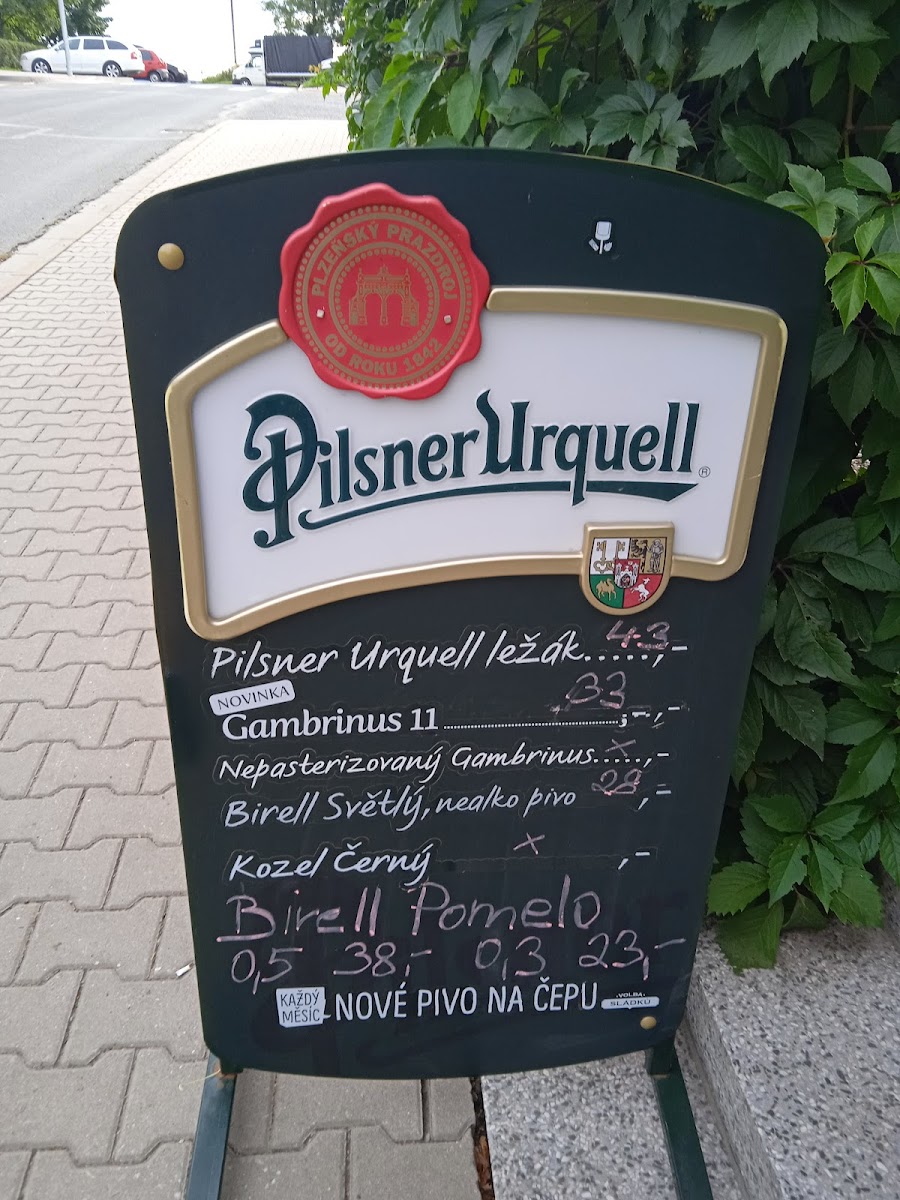 PLZEŇSKÝ PRAZDROJ
OD ROKU 1842
Pilsner Urquell ®
Pilsner Urquell ležák.....43,-
NOVINKA
Gambrinus 11 ........ 33,-
Nepasterizovaný Gambrinus..x...,-
Birell Světlý, nealko pivo 28,-
Kozel Černý x ,-
Birell Pomelo
0,5 38,- 0,3 23,-
KAŽDÝ MĚSÍC NOVÉ PIVO NA ČEPU VOLBA SLÁDKU